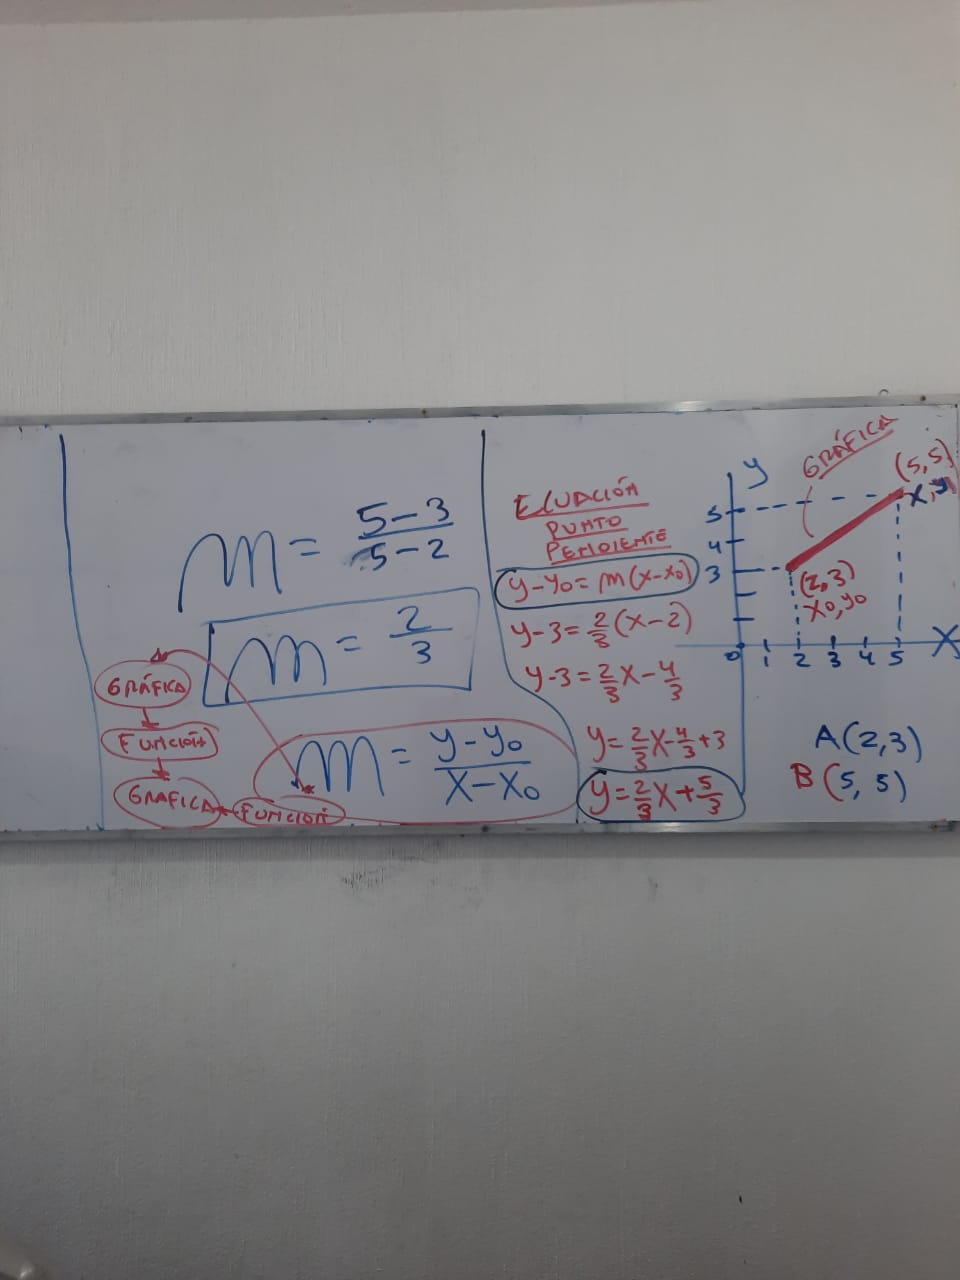 m = 5-3 / 5-2
m = 2/3
GRÁFICA
FUNCIÓN
GRAFICA
FUNCIÓN
m = y-y₀ / x-x₀
ECUACIÓN
PUNTO
PENDIENTE
y-y₀=m(x-x₀)
y-3=2/3(x-2)
y-3=2/3x-4/3
y=2/3x-4/3+3
y=2/3x+5/3
y
GRÁFICA
(5,5)
x,y
5
4
3
(2,3)
x₀,y₀
0 1 2 3 4 5 X
A(2,3)
B(5,5)